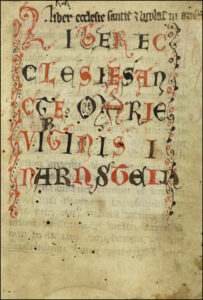 Liber ecclesie sancte & Nycolai in
LIBER EC
CLESIE SAN
CTE MARIE
VIRGINIS I
NARNSTEIN